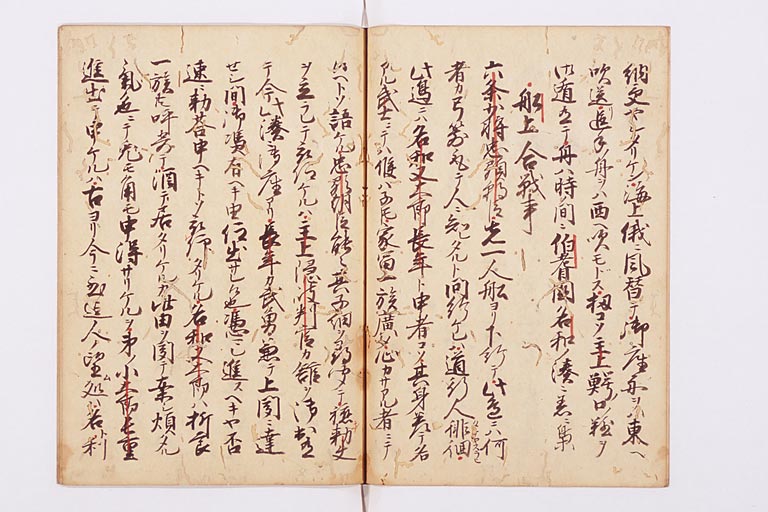 納受ヤシタリケン海上俄ニ風替テ御座舟ヲハ東ヘ
吹送追手舟ヲハ西ヘ吹モドス扨コソ主上鰐口ノ難ヲ
御遁在テ舟ハ時ノ間ニ伯耆国名和ノ湊ニ着ニケリ
船上合戦事
六条少将忠顕朝臣先一人船ヨリ下給テ此辺ニハ何
者カ弓箭取テ人ニ知レタルト問給ケレハ道行人徘徊
此辺ニハ名和又太郎長年ト申者コソ其身差テ名
アル武士ニテハ候ハネトモ家富一族廣心カサアル者ニテ
候ヘトソ語ケル忠顕朝臣能々其子細ヲ尋聞テ軈勅使
ヲ立テ被仰ケルハ主上隠岐判官カ館ヲ御出在
テ今此湊ニ御座アリ長年カ武勇兼テ上聞ニ達
セシ間御憑有ヘキ由仰出サル也憑レ進スヘキヤ否
速ニ勅答申ヘキトソ被仰タリケル名和又太郎ハ折節
一族共呼集テ酒テ居タリケルカ此由ヲ聞テ案シ煩タル
氣色ニテ兎モ角モ申得サリケルヲ弟小太郎長重
進出テ申ケルハ古ヨリ今ニ至迄人ノ望処ハ名ト利